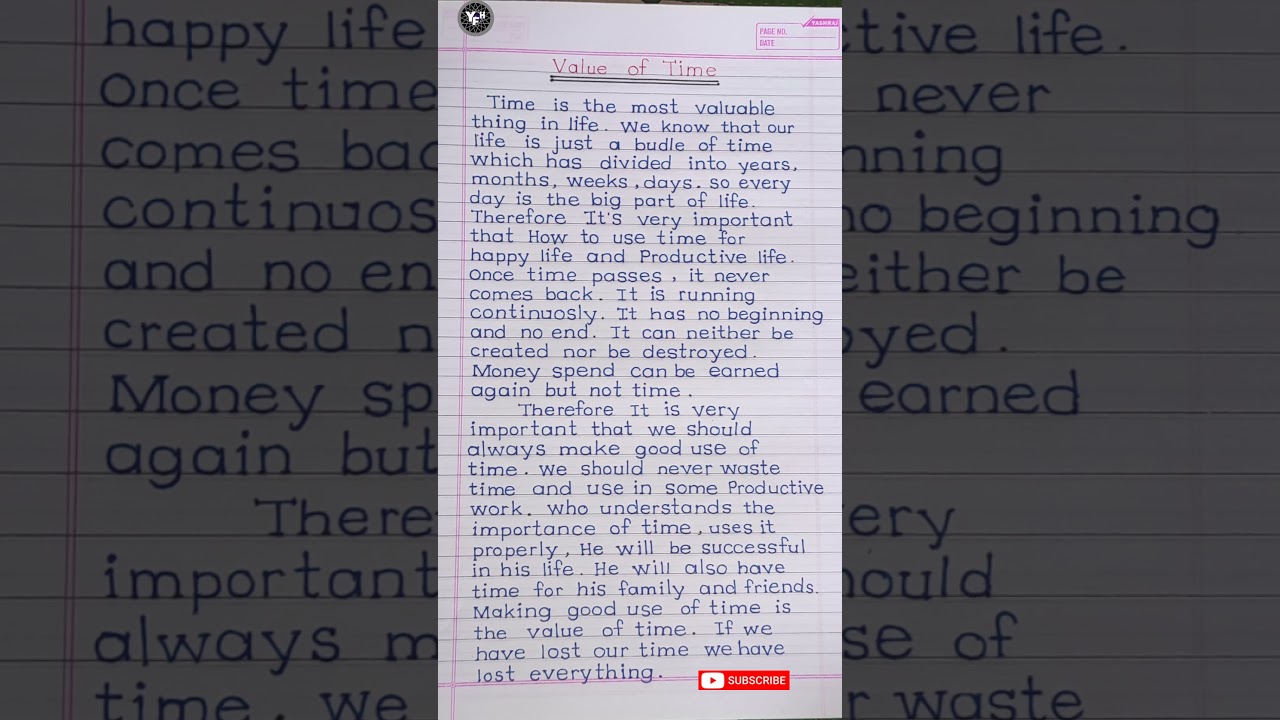 YASHRAJ
PAGE NO.
DATE
Value of Time
Time is the most valuable
thing in life. We know that our
life is just a budle of time
which has divided into years,
months, weeks, days. so every
day is the big part of life.
Therefore It's very important
that How to use time for
happy life and Productive life.
Once time passes, it never
comes back. It is running
continuosly. It has no beginning
and no end. It can neither be
created nor be destroyed.
Money spend can be earned
again but not time.
Therefore It is very
important that we should
always make good use of
time. We should never waste
time and use in some Productive
work. Who understands the
importance of time, uses it
properly, He will be successful
in his life. He will also have
time for his family and friends.
Making good use of time is
the value of time. If we
have lost our time we have
lost everything.
SUBSCRIBE
happy life
Once time
comes bac
continuos
and no en
created n
Money sp
again but
There
important
always m
time. We
ctive life.
never
nning
no beginning
either be
oyed.
earned
ery
hould
se of
r waste